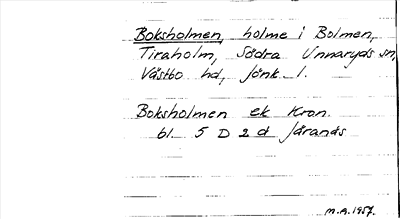 Boksholmen, holme i Bolmen,
Tiraholm, Södra Unnaryds sn,
Västbo hd, Jönk. l.
Boksholmen ek Kron.
bl. 5 D 2 d Järands
M.A. 1957.